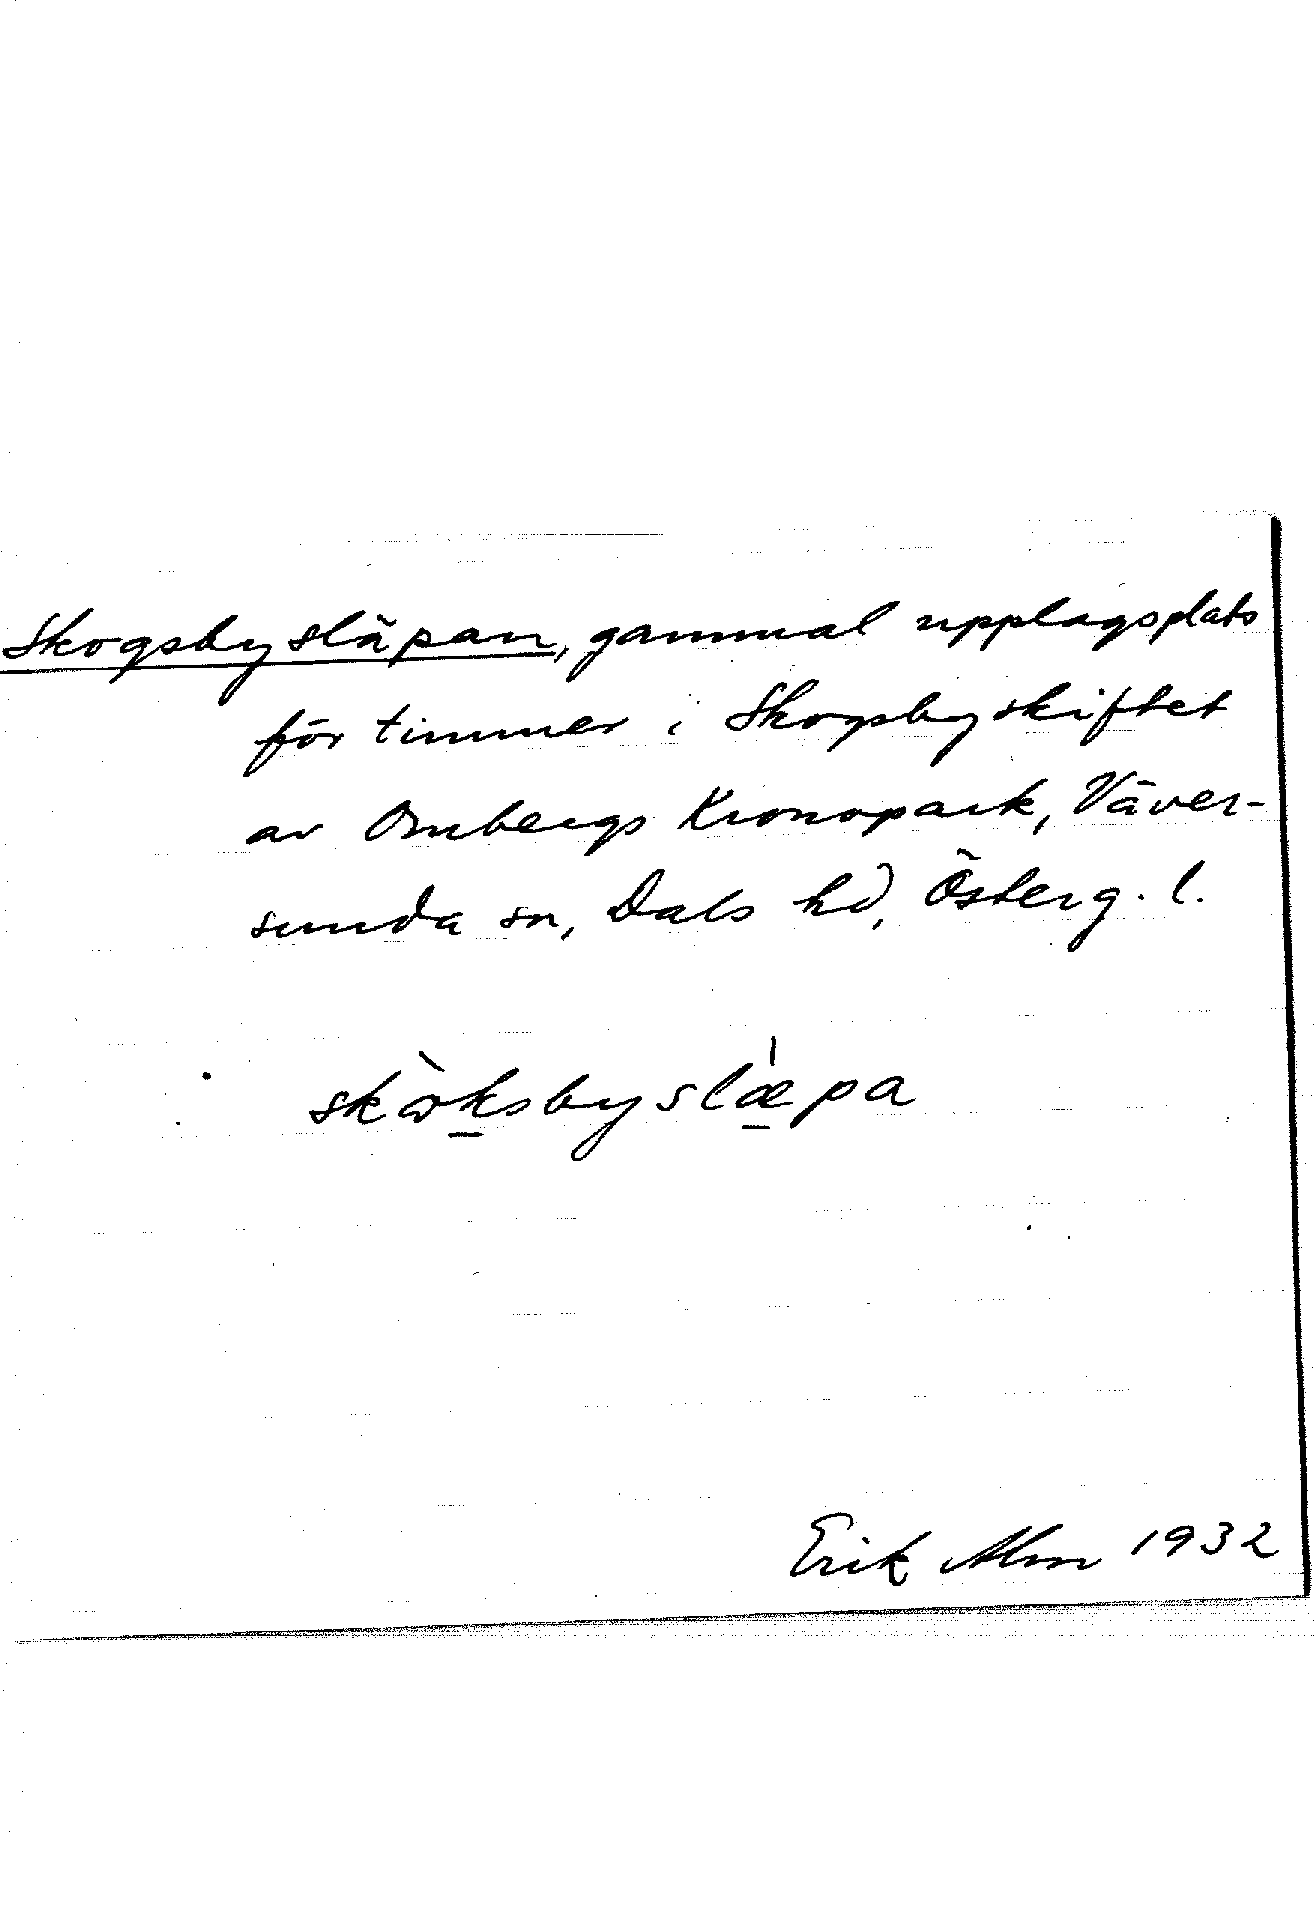 Skogsbysläpan, gammal upplagsplats
för timmer i Skogsbyskiftet
av Ombergs Kronopark, Väver-
sunda sn, Dals hd, Österg. l.
skòksbyslæ̀pa
Erik Alm 1932